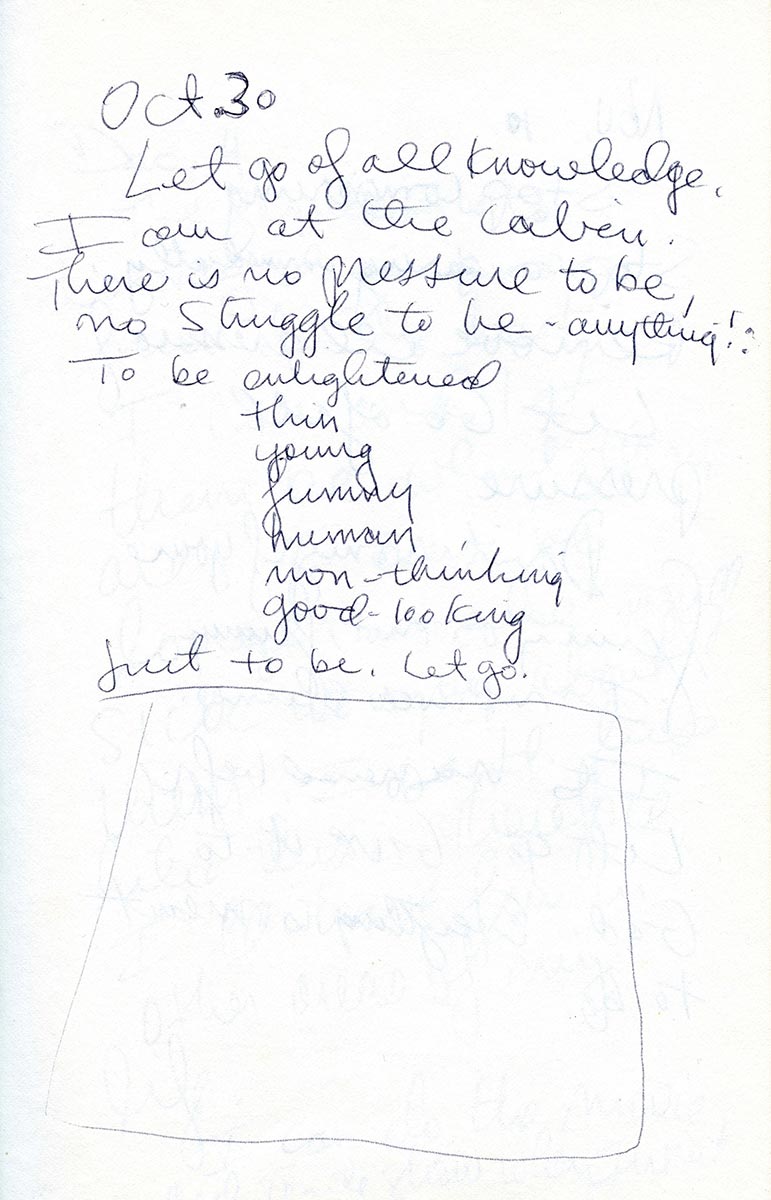 Oct. 30
Let go of all knowledge.
I am at the cabin.
There is no pressure to be,
no struggle to be - anything!:
To be enlightened
thin
young
funny
human
non-thinking
good-looking
Just to be. Let go.